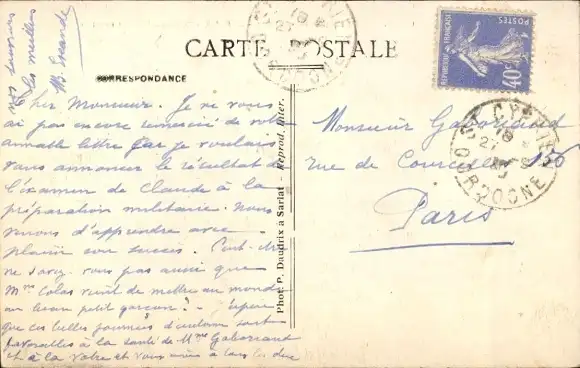 nos souvenirs
les meilleurs
CARTE POSTALE
CORRESPONDANCE
RÉPUBLIQUE FRANÇAISE
POSTES
40c
ST CYPRIEN
18
27
DORDOGNE
Cher Monsieur. Je ne vous
ai pas encore remercié de votre
aimable lettre car je voulais
vous annoncer le résultat de
l'examen de Claude à la
préparation militaire. Nous
venons d'apprendre avec
plaisir son succès. Peut-être
ne savez-vous pas aussi que
Mme Colas vient de mettre au monde
un beau petit garçon! - J'espère
que ces belles journées d'automne sont
favorables à la santé de Mme Gaborriaud
et à la vôtre et vous à tous les deux
Phot. c. Daudrix à Sarlat - Reprod. Inter.
Monsieur Gaborriaud
rue de Courcelles 150
Paris
ST CYPRIEN
18
27
DORDOGNE